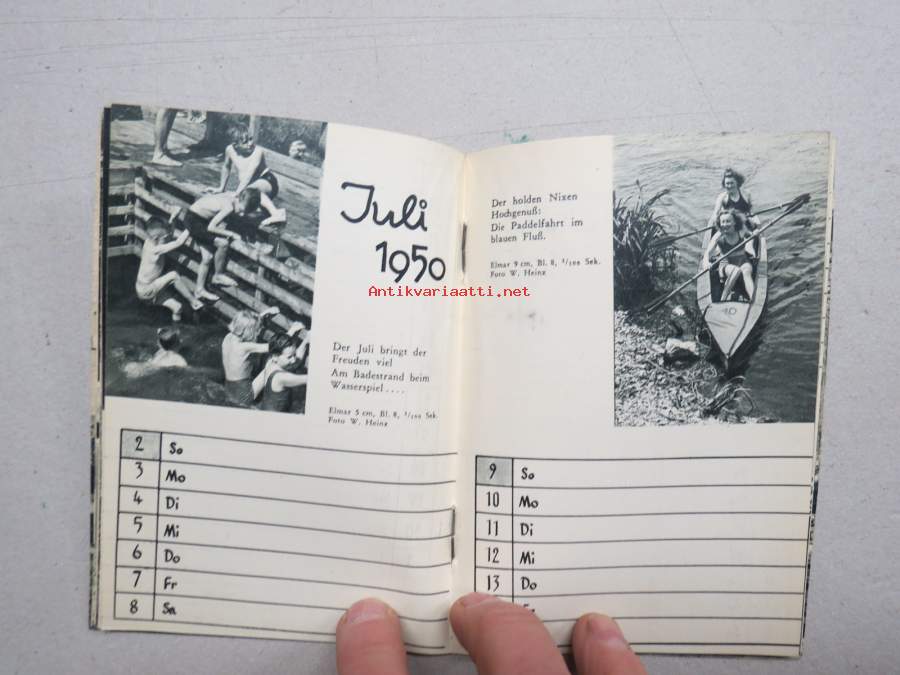 Juli
1950
Der Juli bringt der
Freuden viel
Am Badestrand beim
Wasserspiel . . . .
Elmar 5 cm, Bl. 8, ¹/₁₀₀ Sek.
Foto W. Heinz
2 So
3 Mo
4 Di
5 Mi
6 Do
7 Fr
8 Sa
Der holden Nixen
Hochgenuß:
Die Paddelfahrt im
blauen Fluß.
Elmar 9 cm, Bl. 8, ¹/₁₀₀ Sek.
Foto W. Heinz
9 So
10 Mo
11 Di
12 Mi
13 Do
Antikvariaatti.net